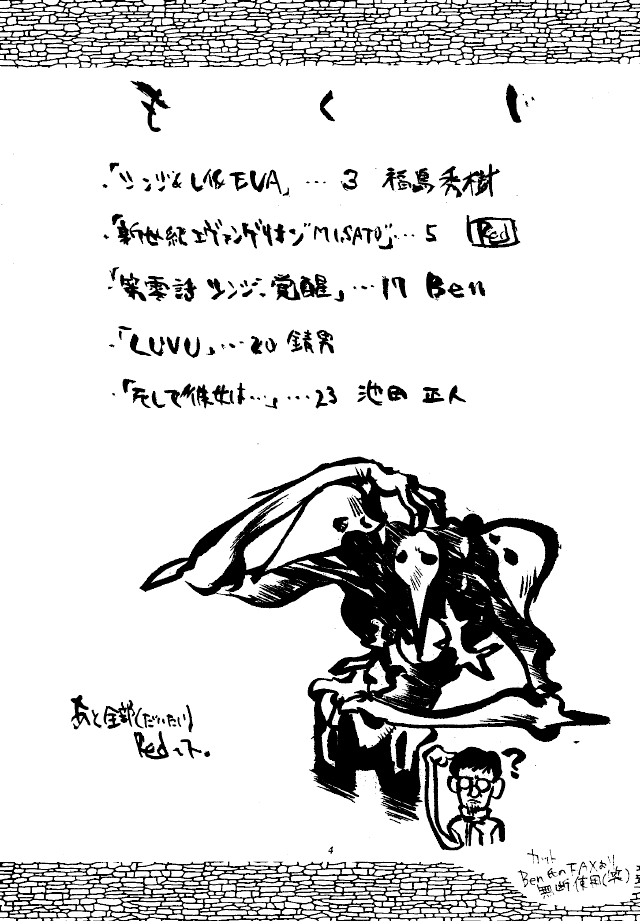 もくじ
・「シンジ&レイ&EVA」…3 福島秀樹
・「新世紀エヴァンゲリオン"MISATO"」…5 Red
・「第零話 シンジ、覚醒」…17 Ben
・「LUVU」…20 錆男
・「そして彼女は…」…23 池田 正人
あと全部(だいたい)
Redっス。
?
4
カット
Ben氏のFAXより
無断使用(笑)